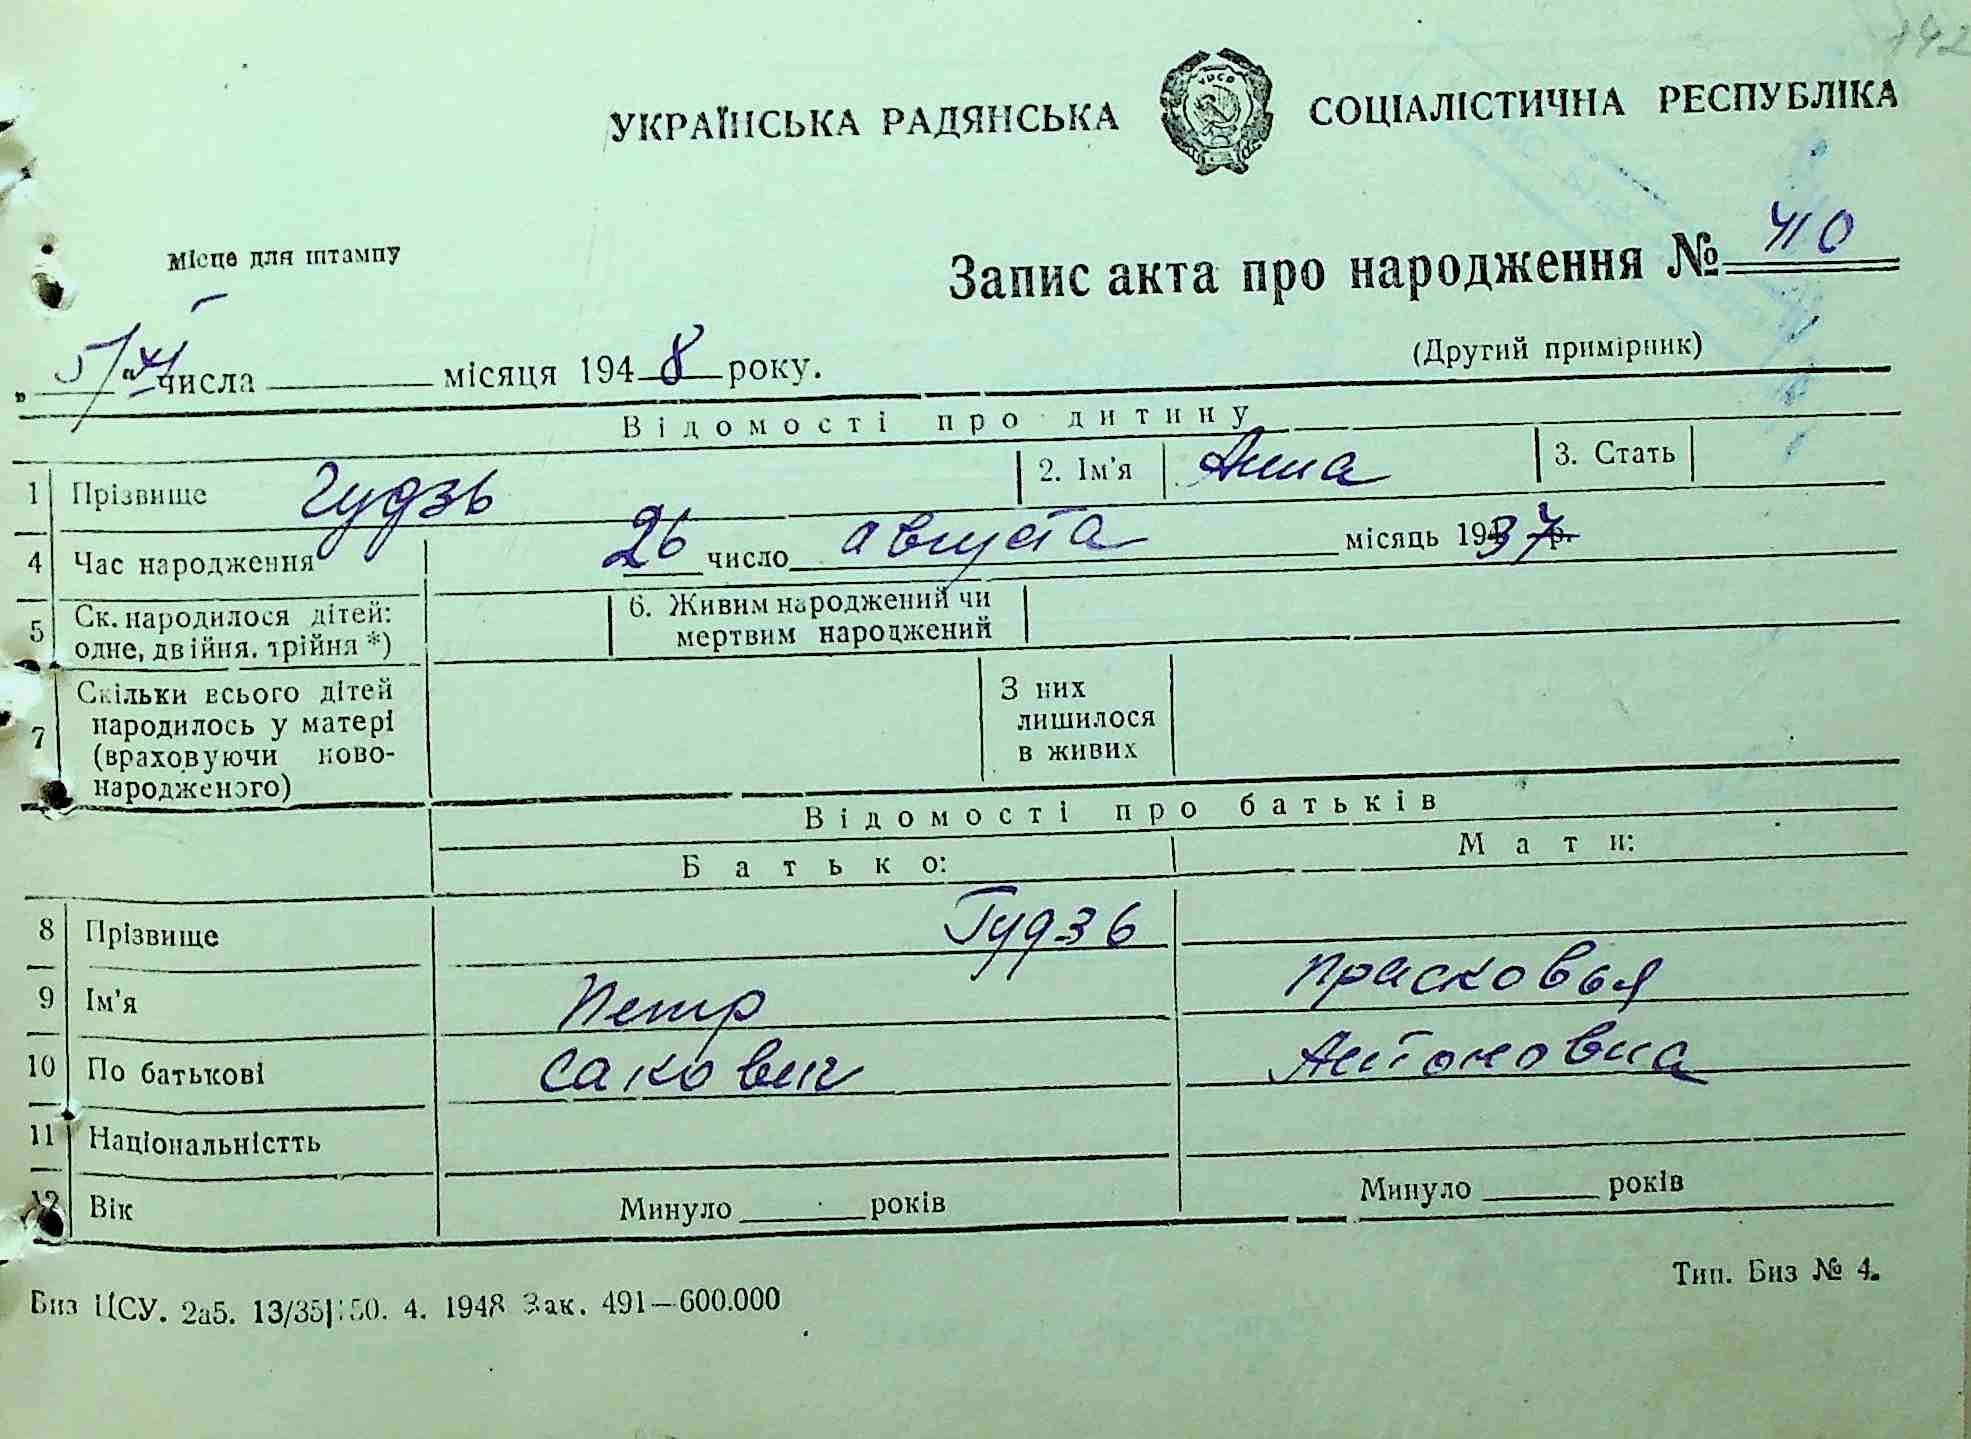 УКРАЇНСЬКА РАДЯНСЬКА СОЦІАЛІСТИЧНА РЕСПУБЛІКА
УРСР
Місце для штампу
Запис акта про народження № 410
„ 5/ числа місяця 1948 року.
(Другий примірник)
Відомості про дитину
1 Прізвище Гудзь 2. Ім'я Анна 3. Стать
4 Час народження 26 число августа місяць 1937 р.
5 Ск. народилося дітей: 6. Живим народжений чи
одне, двійня. трійня *) мертвим народжений
7 Скільки всього дітей З них
народилось у матері лишилося
(враховуючи ново- в живих
народженого)
Відомості про батьків
Батько: Мати:
8 Прізвище Гудзь
9 Ім'я Петр Прасковья
10 По батькові Сакович Антоновна
11 Національністть
12 Вік Минуло років Минуло років
Биз ЦСУ. 2а5. 13/35 50. 4. 1948 Зак. 491—600.000
Тип. Биз № 4.